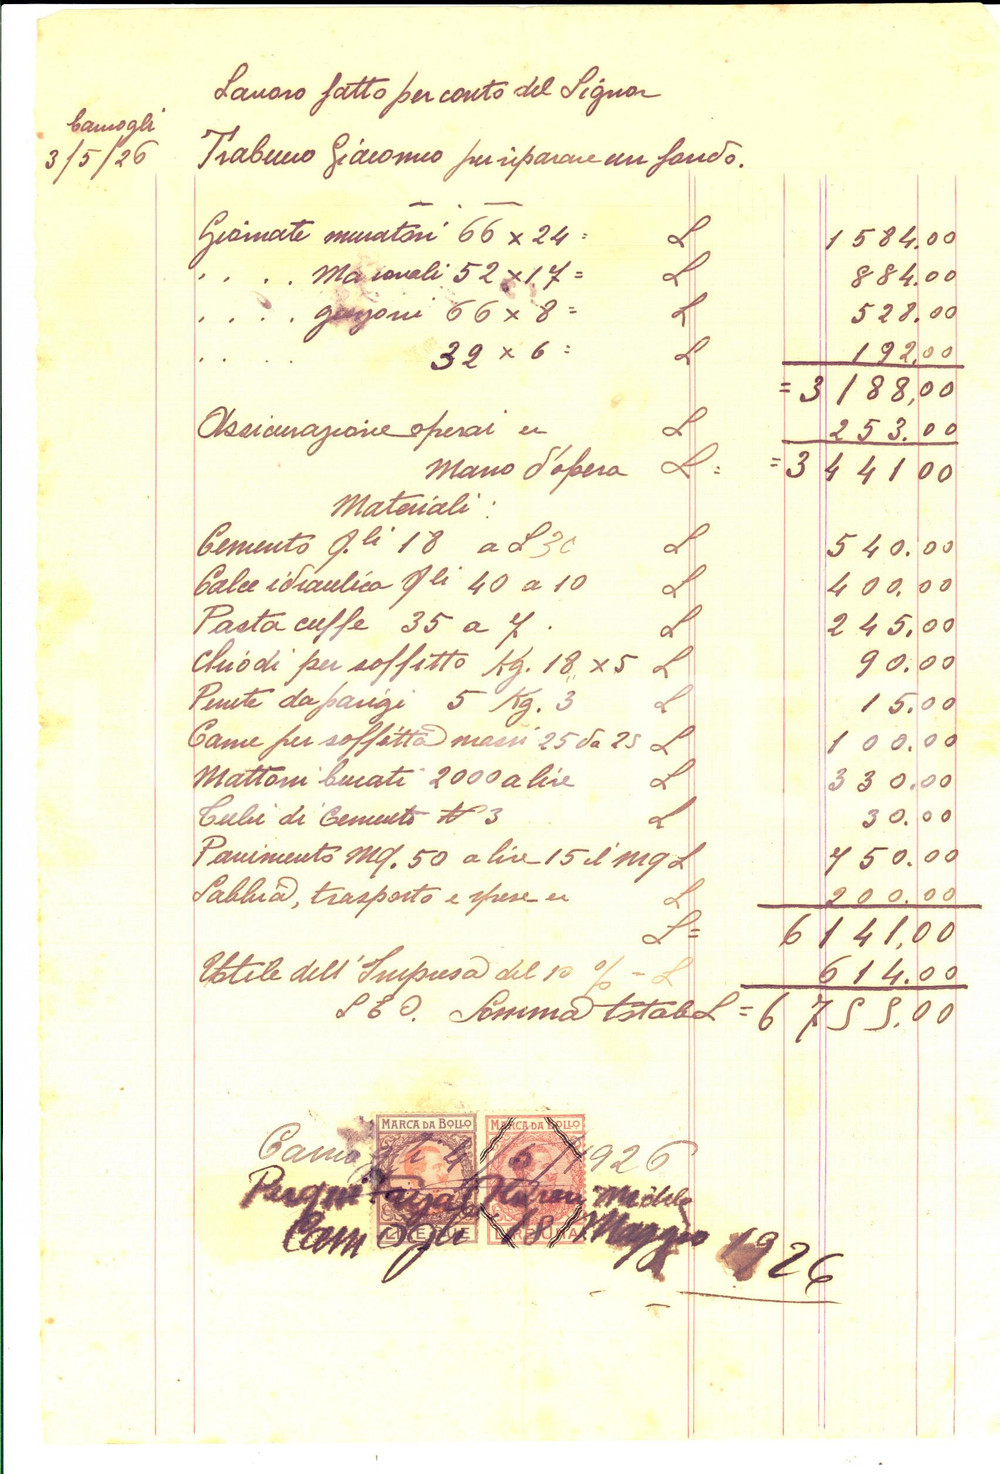 Lavoro fatto per conto del Signor
Camogli
3/5/26 Trabucco Giacomo per riparare un fondo.
Giornate muratori 66 x 24 = L 1584.00
. . . . Manovali 52 x 17 = L 884.00
. . . . garzoni 66 x 8 = L 528.00
. . . . 32 x 6 = L 192.00
= 3188,00
Assicurazione operai L 253.00
Mano d'opera L = = 3441.00
Materiali :
Cemento Q.li 18 a L 30 L 540.00
Calce idraulica Qli 40 a 10 L 400.00
Pasta cuffe 35 a 7 . L 245.00
Chiodi per soffitto Kg. 18 x 5 L 90.00
Punte da parigi 5 Kg. 3 L 15.00
Canne per soffitta mazzi 25 da 25 L 100.00
Mattoni bucati 2000 a lire L 330.00
Tubi di Cemento N 3 L 30.00
Pavimento Mq. 50 a lire 15 il mq L 750.00
Sabbia, trasporto e spese L 200.00
L = 6141,00
Utile dell' Impresa del 10 % - L 614.00
S.E.O. Somma totale L = 6755.00
MARCA DA BOLLO MARCA DA BOLLO
Camogli 4/5/1926
Michele
LIRE DUE LIRE UNA
Camogli 18 Maggio 1926